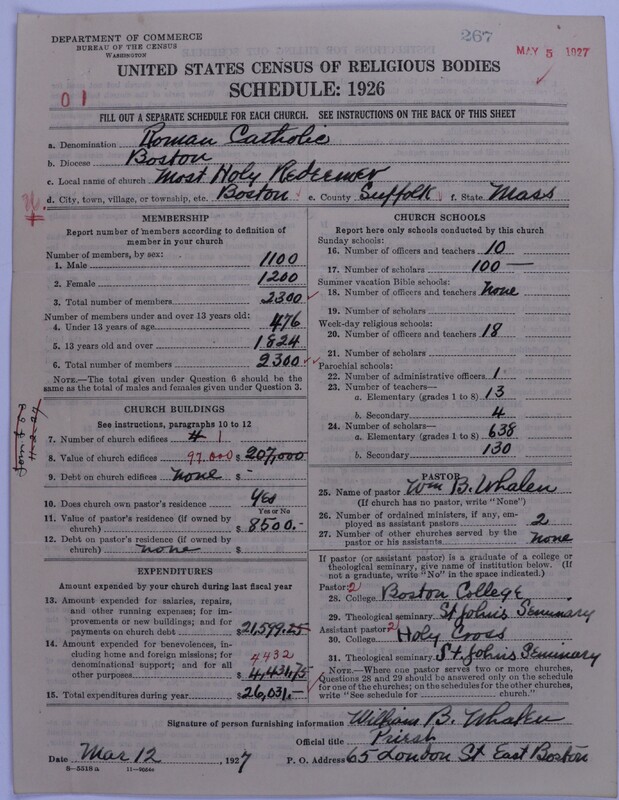 DEPARTMENT OF COMMERCE
BUREAU OF THE CENSUS
WASHINGTON
267
MAY 5 1927
UNITED STATES CENSUS OF RELIGIOUS BODIES
SCHEDULE: 1926
0 1
FILL OUT A SEPARATE SCHEDULE FOR EACH CHURCH. SEE INSTRUCTIONS ON THE BACK OF THIS SHEET
a. Denomination Roman Catholic
b. Diocese Boston
c. Local name of church Most Holy Redeemer
d. City, town, village, or township, etc. Boston e. County Suffolk f. State Mass
MEMBERSHIP
Report number of members according to definition of member in your church
Number of members, by sex:
1. Male 1100
2. Female 1200
3. Total number of members 2300
Number of members under and over 13 years old:
4. Under 13 years of age 476
5. 13 years old and over 1824
6. Total number of members 2300
NOTE.—The total given under Question 6 should be the same as the total of males and females given under Question 3.
CHURCH BUILDINGS
See instructions, paragraphs 10 to 12
7. Number of church edifices 4 1
8. Value of church edifices 97,000 $ 207,000
9. Debt on church edifices none $ -
10. Does church own pastor's residence Yes
Yes or No
11. Value of pastor's residence (if owned by church) $ 8500.-
12. Debt on pastor's residence (if owned by church) none $
EXPENDITURES
Amount expended by your church during last fiscal year
13. Amount expended for salaries, repairs, and other running expenses; for improvements or new buildings; and for payments on church debt $ 21,599.25
14. Amount expended for benevolences, including home and foreign missions; for denominational support; and for all other purposes 4432 $ 4,431.75
15. Total expenditures during year $ 26,031.-
CHURCH SCHOOLS
Report here only schools conducted by this church
Sunday schools:
16. Number of officers and teachers 10
17. Number of scholars 100 —
Summer vacation Bible schools:
18. Number of officers and teachers none
19. Number of scholars
Week-day religious schools:
20. Number of officers and teachers 18
21. Number of scholars
Parochial schools:
22. Number of administrative officers 1
23. Number of teachers—
a. Elementary (grades 1 to 8) 13
b. Secondary 4
24. Number of scholars—
a. Elementary (grades 1 to 8) 638
b. Secondary 130
PASTOR
25. Name of pastor Wm B. Whalen
(If church has no pastor, write "None")
26. Number of ordained ministers, if any, employed as assistant pastors 2
27. Number of other churches served by the pastor or his assistants none
If pastor (or assistant pastor) is a graduate of a college or theological seminary, give name of institution below. (If not a graduate, write "No" in the space indicated.)
Pastor: 2
28. College Boston College
29. Theological seminary St John's Seminary
Assistant pastor: 2
30. College Holy Cross
31. Theological seminary St. John's Seminary
NOTE.—Where one pastor serves two or more churches, Questions 28 and 29 should be answered only on the schedule for one of the churches; on the schedules for the other churches, write "See schedule for church."
Signature of person furnishing information William B. Whalen
Official title Priest
Date Mar 12 1927 P. O. Address 65 London St East Boston